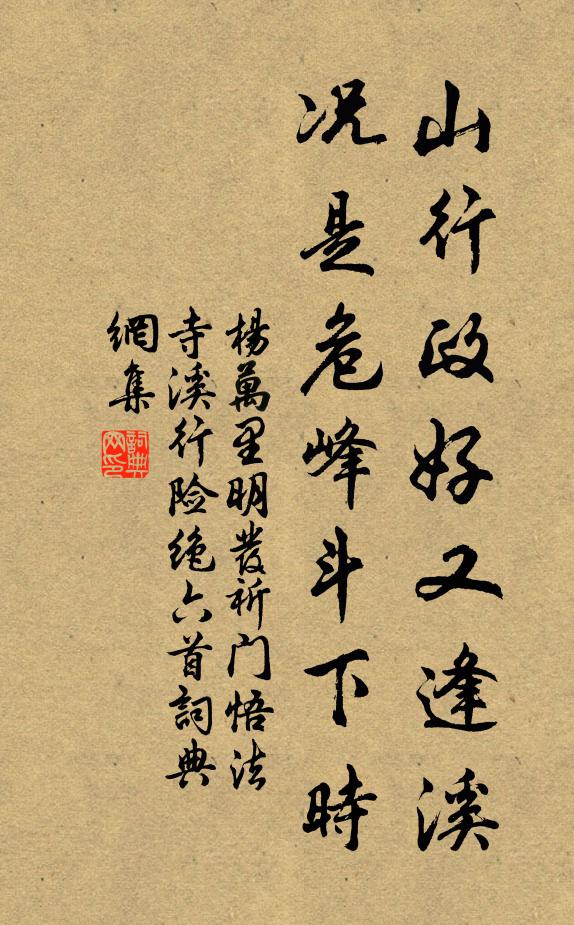 山行政好又逢溪
况是危峰斗下時
楊萬里明發祈门悟法
寺溪行险绝六首詞典
網集
詞典网印